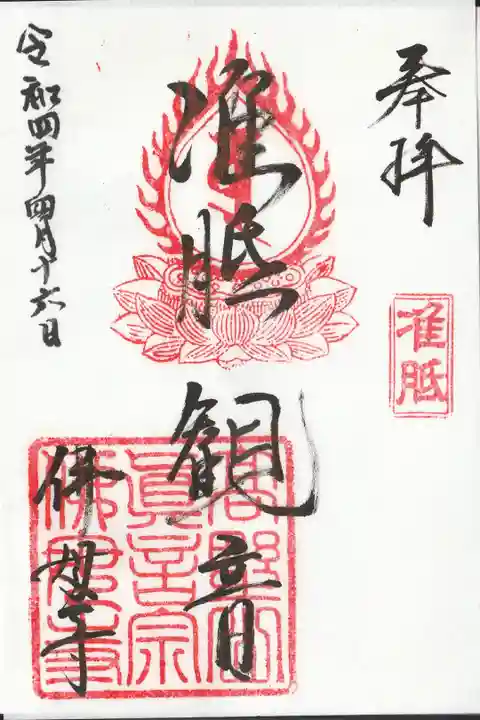 奉拝
准胝
准胝観音
高野山
真言宗
佛母寺
佛母寺
令和四年四月十六日